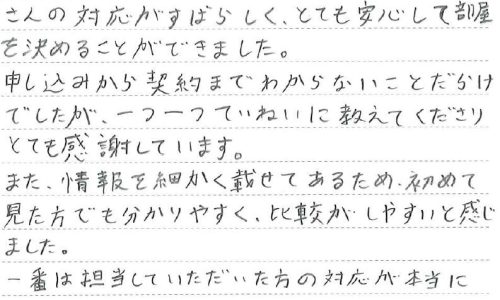 さんの対応がすばらしく、とても安心して部屋
を決めることができました。
申し込みから契約までわからないことだらけ
でしたが、一つ一つていねいに教えてくださり
とても感謝しています。
また、情報を細かく載せてあるため、初めて
見た方でも分かりやすく、比較がしやすいと感じ
ました。
一番は担当していただいた方の対応が本当に